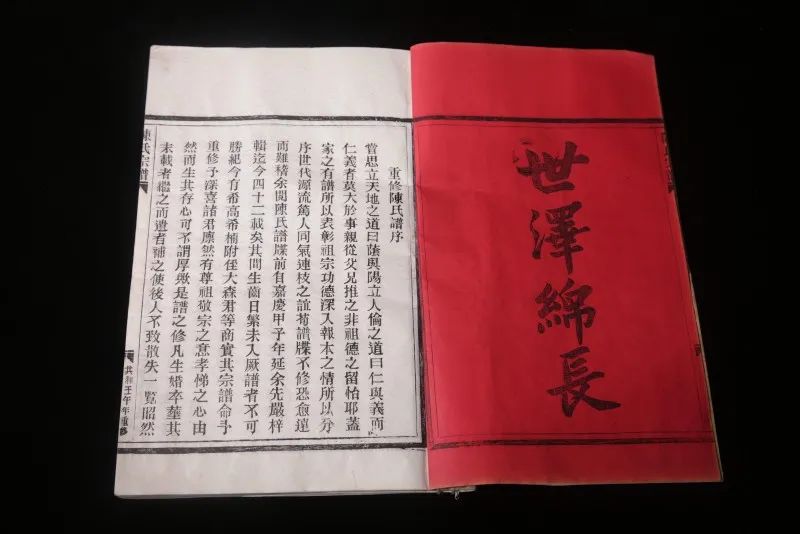 世澤綿長
重修陳氏譜序
嘗思立天地之道曰蔭與陽立人倫之道曰仁與義而
仁義者莫大於事親從父兄推之非祖德之留怡耶蓋
家之有譜所以表彰祖宗功德深入報本之情所以分
序世代源流篤人同氣連枝之誼苟譜牒不修恐愈遠
而難稽余閱陳氏譜牒前自嘉慶甲子年延余先嚴梓
輯迄今四十二載矣其間生齒日繁未入厥譜者不可
勝紀今有希高希楠附侄大森君等商實其宗譜命予
重修予深喜諸君廪然有尊祖敬宗之意孝悌之心由
然而生其存心可不謂厚歟是譜之修凡生婚卒塟其
未載者繼之而遺者補之使後人不致散失一覧昭然
陳氏宗譜
共和壬午年重修